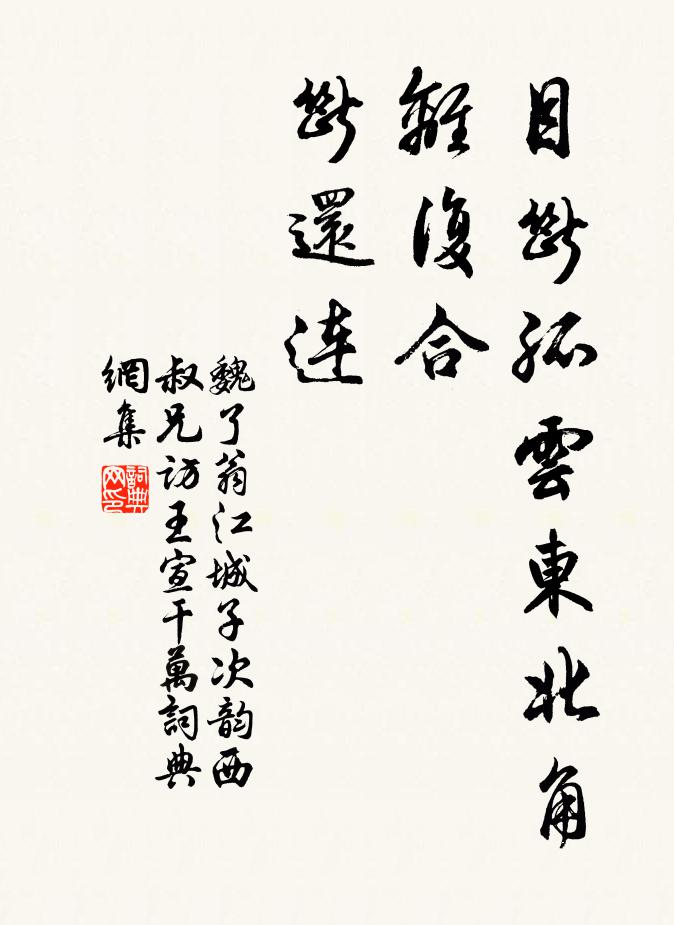 目断孤雲東北角
離復合
断還連
魏了翁江城子次韵西
叔兄访王宣干萬詞典
網集
詞典網印